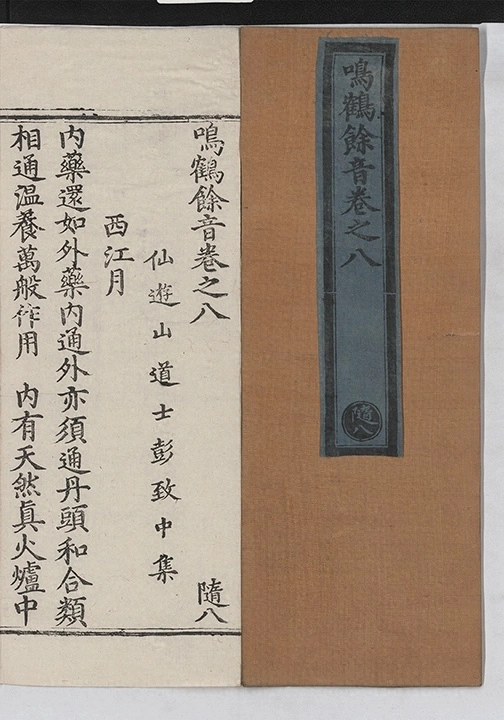 鳴鶴餘音卷之八
隨八
鳴鶴餘音卷之八 隨八
仙遊山道士彭致中集
西江月
内藥還如外藥内通外亦須通丹頭和合類
相通溫養萬般作用 内有天然眞火爐中